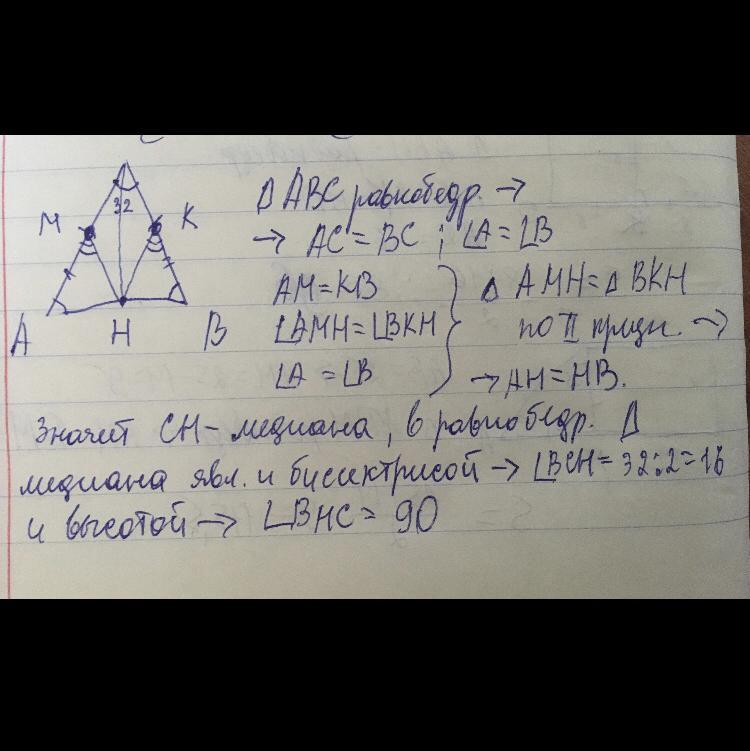 32
M K
A H B
Δ ABC равнобедр. →
→ AC = BC ; ∠A = ∠B
AM = KB
∠AMH = ∠BKH
∠A = ∠B
Δ AMH = Δ BKH
по II призн. →
→ AH = HB.
Значит CH - медиана, в равнобедр. Δ
медиана явл. и бисектрисой → ∠BCH = 32:2 = 16
и высотой → ∠BHC = 90